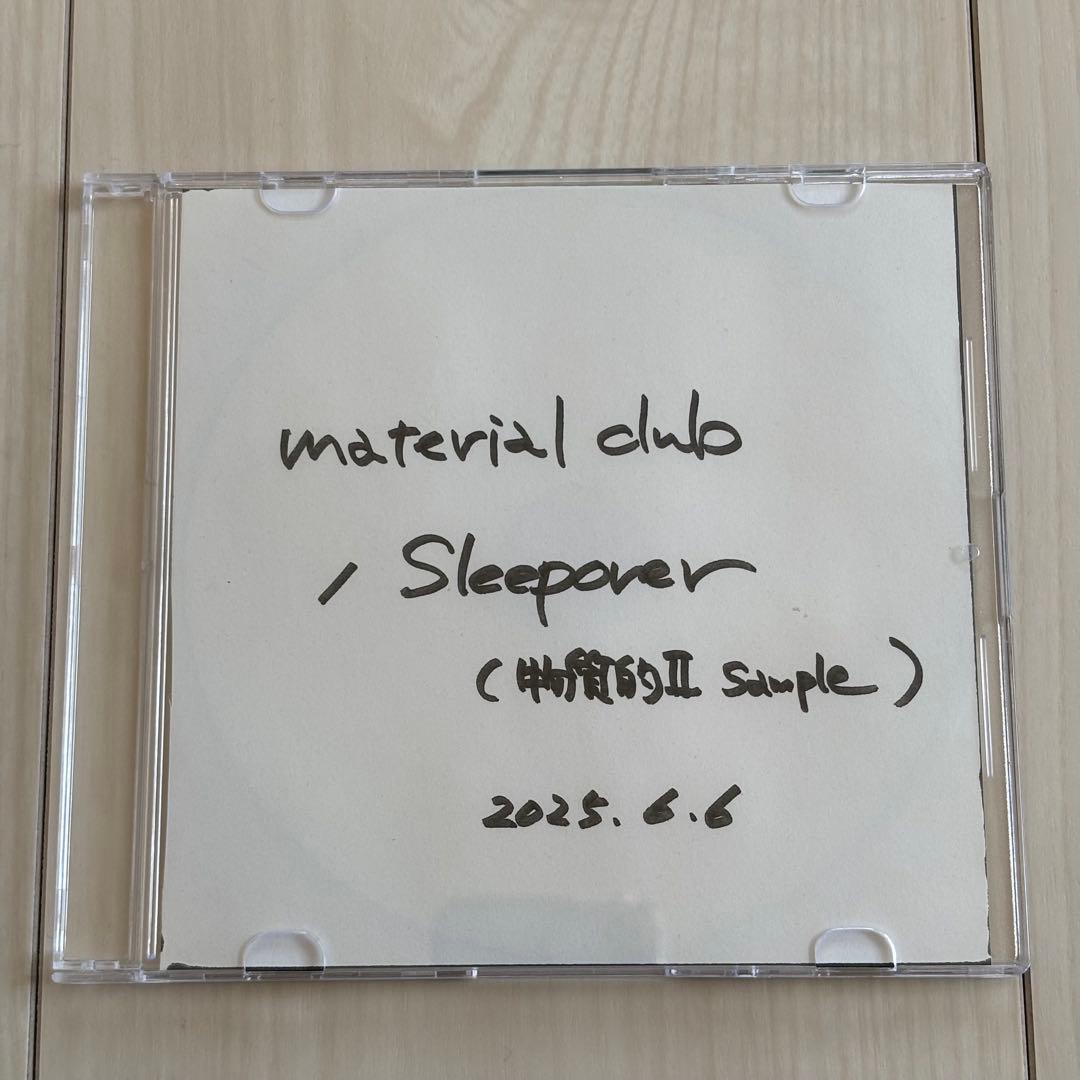 material club
/ Sleepover
(物質的Ⅱ Sample)
2025.6.6